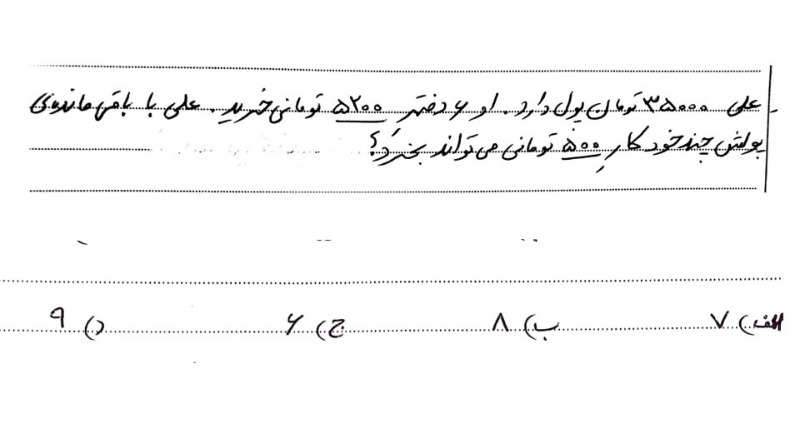 علی ۳۵۰۰۰ تومان پول دارد. او ۶ دفتر ۵۲۰۰ تومانی خرید. علی با باقی مانده‌ی
پولش چند خودکارِ ۵۰۰ تومانی می‌تواند بخرد؟
الف) ۷ ب) ۸ ج) ۶ د) ۹